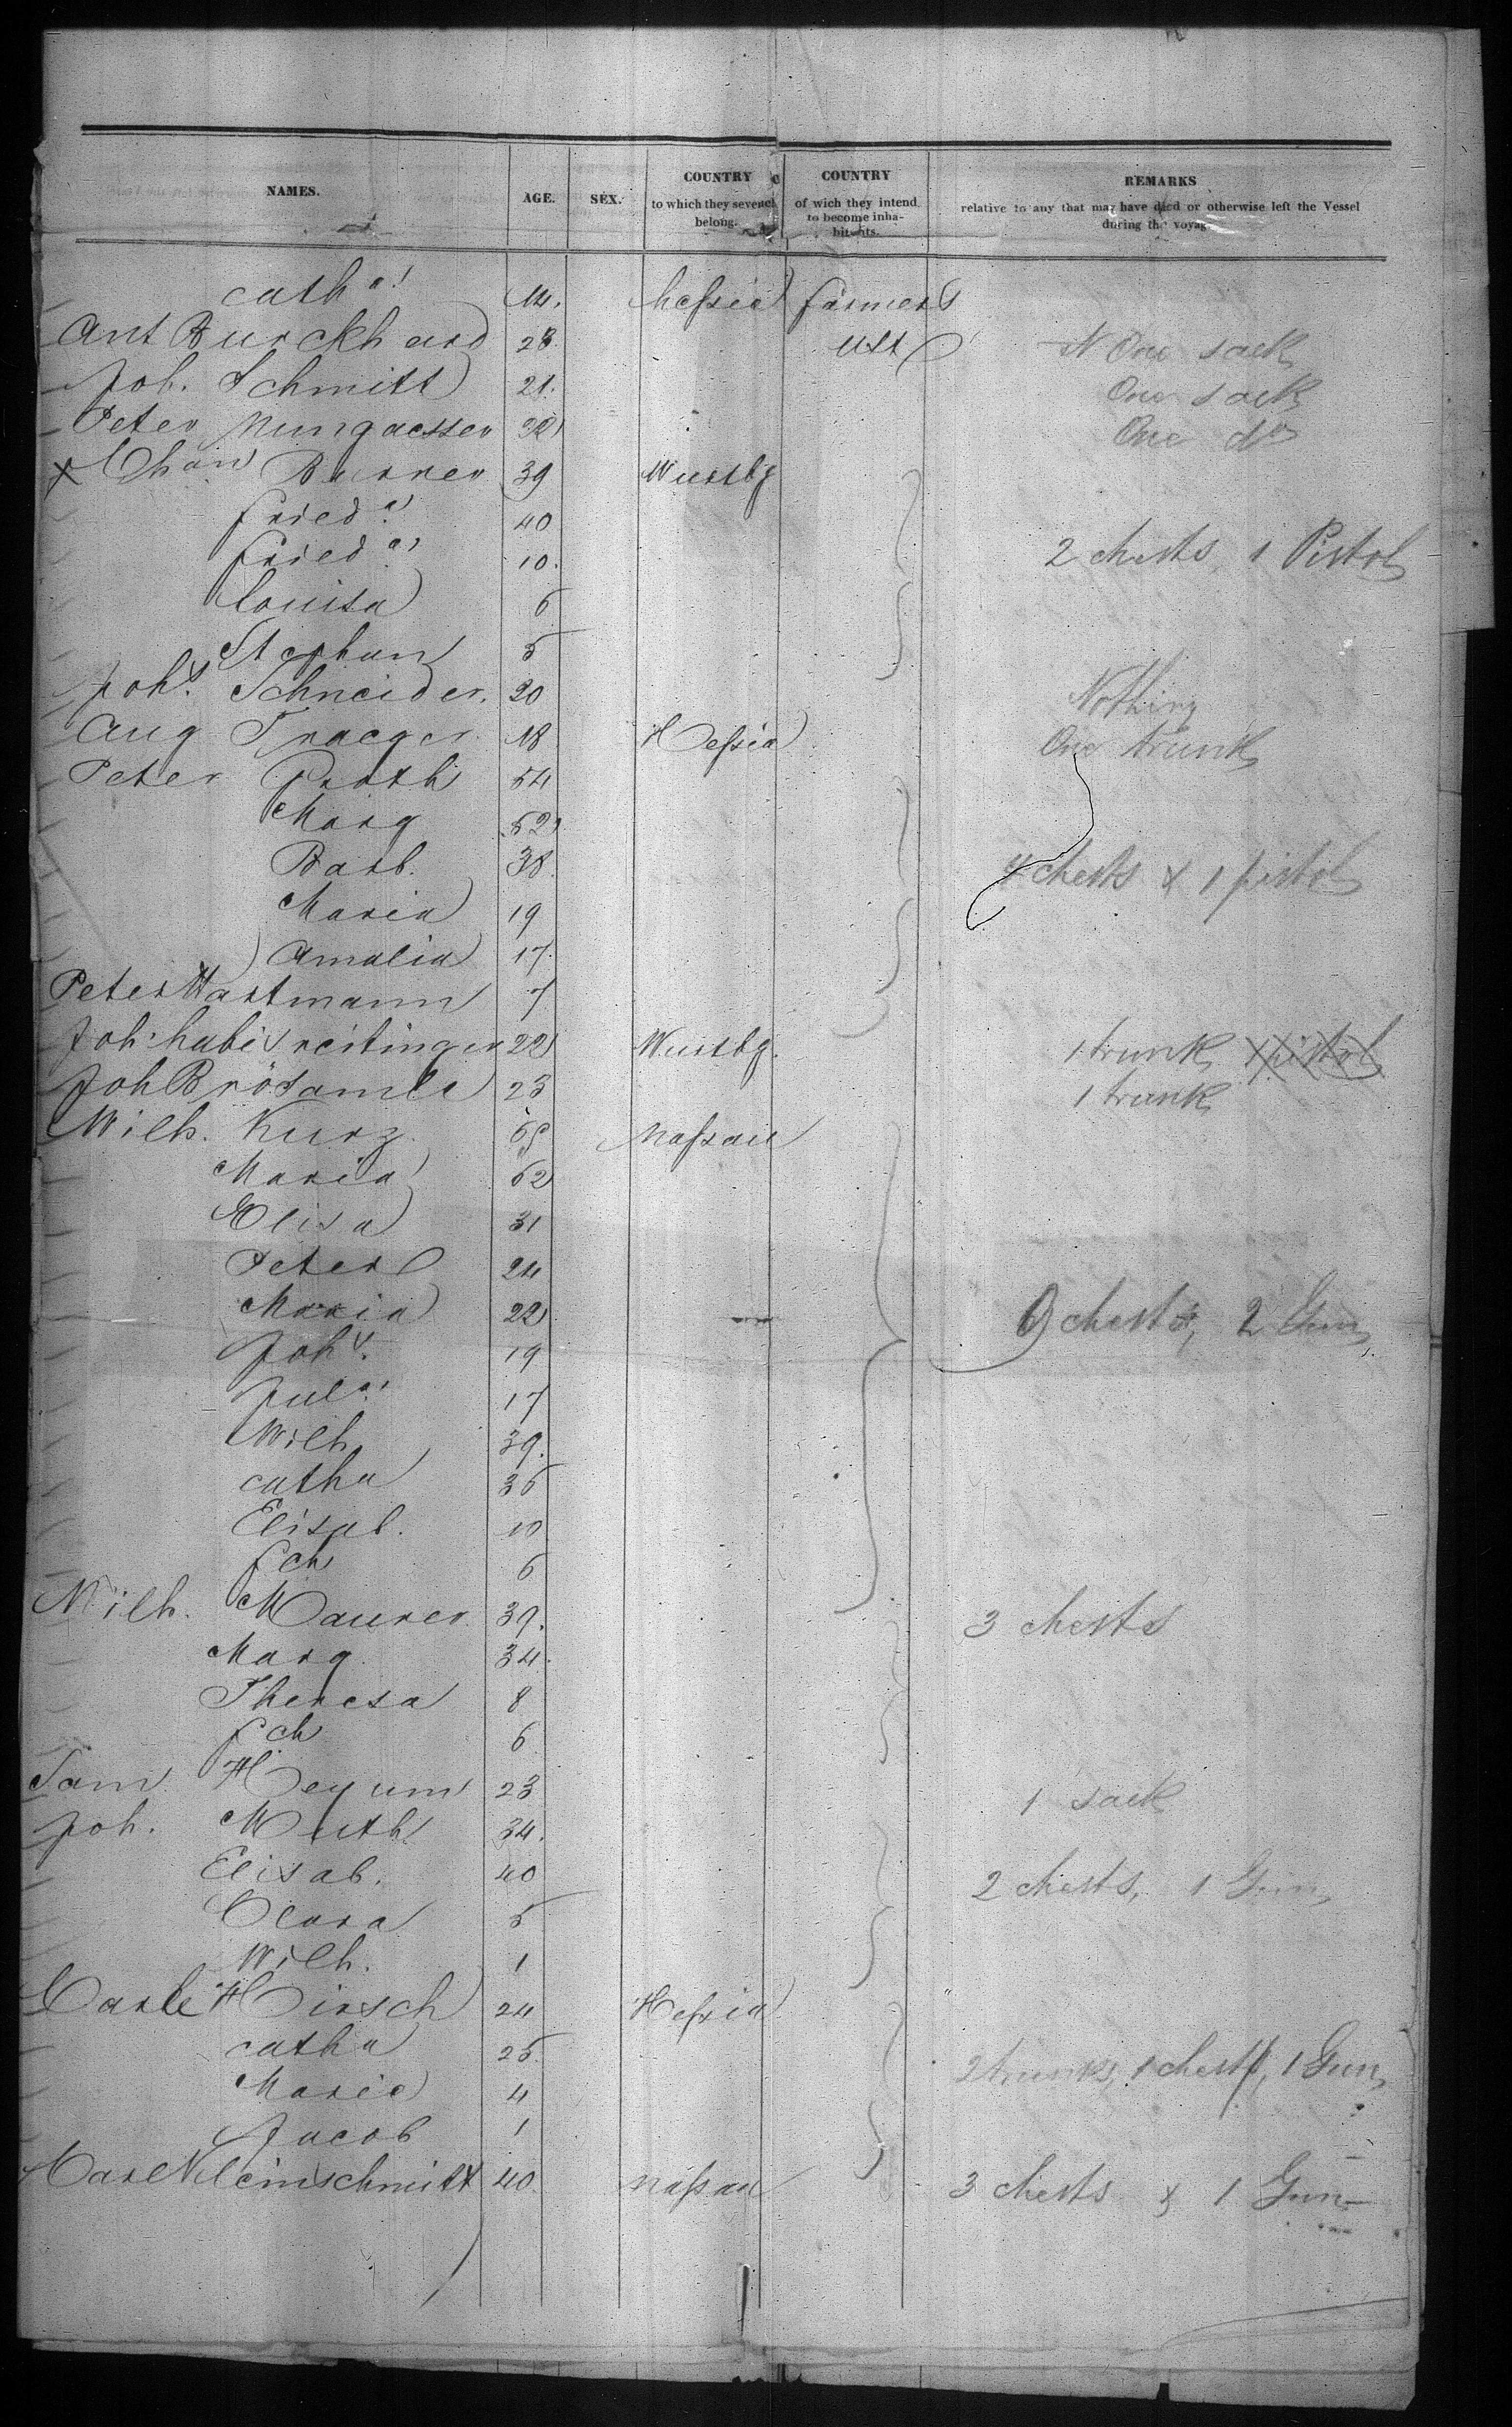 NAMES. AGE. SEX. COUNTRY to which they seveneh belong. COUNTRY of wich they intend to become inhabitants. REMARKS relative to any that may have died or otherwise left the Vessel during the voyag
Catha. 14. Hessia farmers
Ant Burckhard 28 One sack
Joh. Schmitt 21. One sack
Peter Nungaesser One do
Burrer 39 Wurtbg
Frieda. 40
Frieda. 10. 2 chests, 1 Pistol
Louisa 6
Stephan 5
Joh. Schneider. 20 Nothing
Aug Traeger 18 Hessia One trunk
Peter 54
Marg 52
Barb. 38. 4 chests & 1 pistol
Maria 19
Amalia 17.
Peter Hartmann 7
Joh. 22 Wurtbg. 1 trunk & pistol
Joh Brösamle 23 1 trunk
Wilh. Kurz. Nassau
Maria 52
Elisa 31
Peter 24
Maria 22 9 chests, 2 Guns
Joh. 19
Jula. 17
Wilh 39.
Catha 35
Elisab. 10
Fch 6
Wilh. Maurer 39. 3 chests
Marg 34.
Theresa 8
Fch 6
Sam Heyum 23 1 sack
Joh. Muth 34.
Elisab. 40 2 chests, 1 Gun
Clara 5
Wilh. 1
Carle Hirsch 24 Hessia
Catha 25. 2 trunks, 1 chest, 1 Gun
Maria 4
Jacob 1
Carl Kleinschmitt 40. Nassau 3 chests & 1 Gun